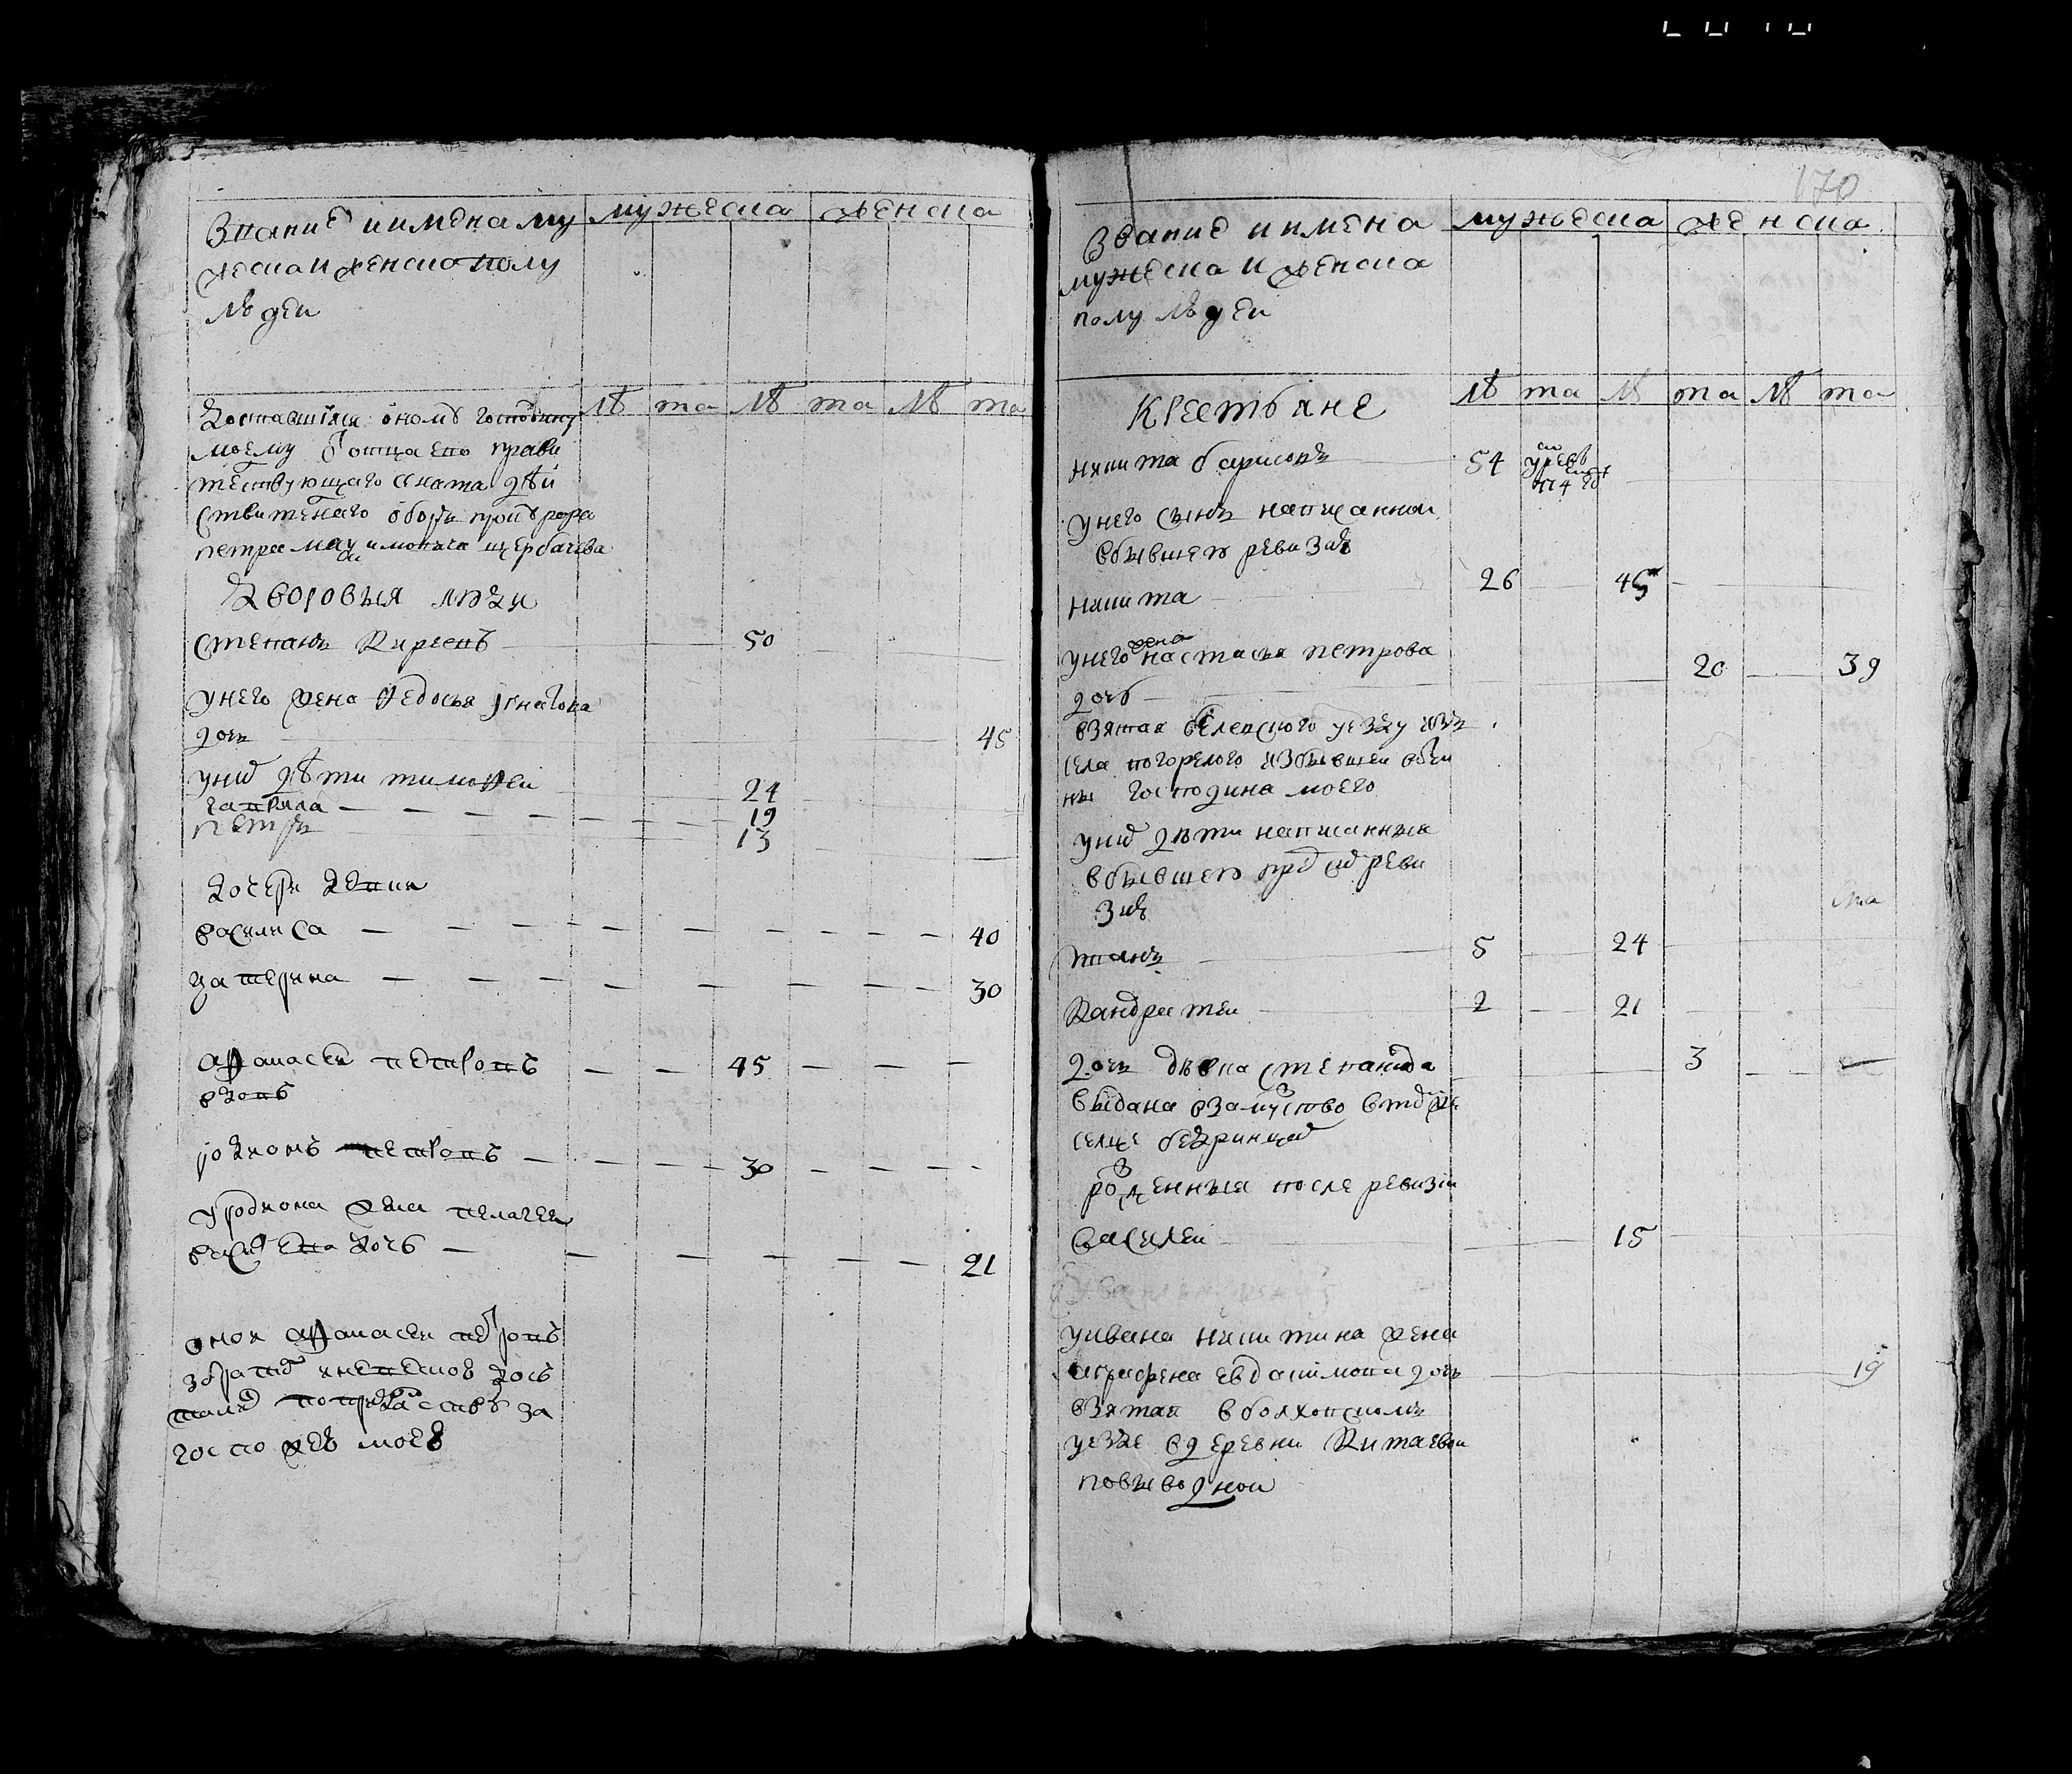 Звание и имена му
жеска и женска полу
людей
мужеска
женска
ле та ле та ле та
Доставшияся оному господину
моему от отца ево прави
тельствующаго сената дей
ствителнаго обор прокурора
петра максимовича щербачева
Дворовыя люди
степанъ Киреевъ 50
унего жена Федосья игнатова
дочь 45
уних дѣти тимофеи 24
гаврила 19
петръ 13
дочери девки
василиса 40
катерина 30
афанасеи петровъ 45
вдовъ
родионъ петровъ 30
уродиона жена пелагея
дочь 21
оной афанасеи петровъ
збратом
госпожею моею
170
Звание и имена
мужеска и женска
полу людей
мужеска
женска
Крестьяне
ле та ле та ле та
никита барисовъ 54
унего сынъ написанной
вбывшею ревизию
никита 26 45
унего жена настасья петрова 20 39
дочь
взятая белевского уезду изъ
села погорелого избывшей вотчи
ны господина моего
уних дѣти написанныя
вбывшею пред сим реви
зию
иванъ 5 24
Кандратеи 2 21
дочь девка степанида 3
выдана взамужство втом же
селце
рожденныя после ревизии
василеи 15
уивана никитина жена
аграфена евдакимова дочь 19
взятая вболховскомъ
уезде вдеревни Китаевой
повыводной